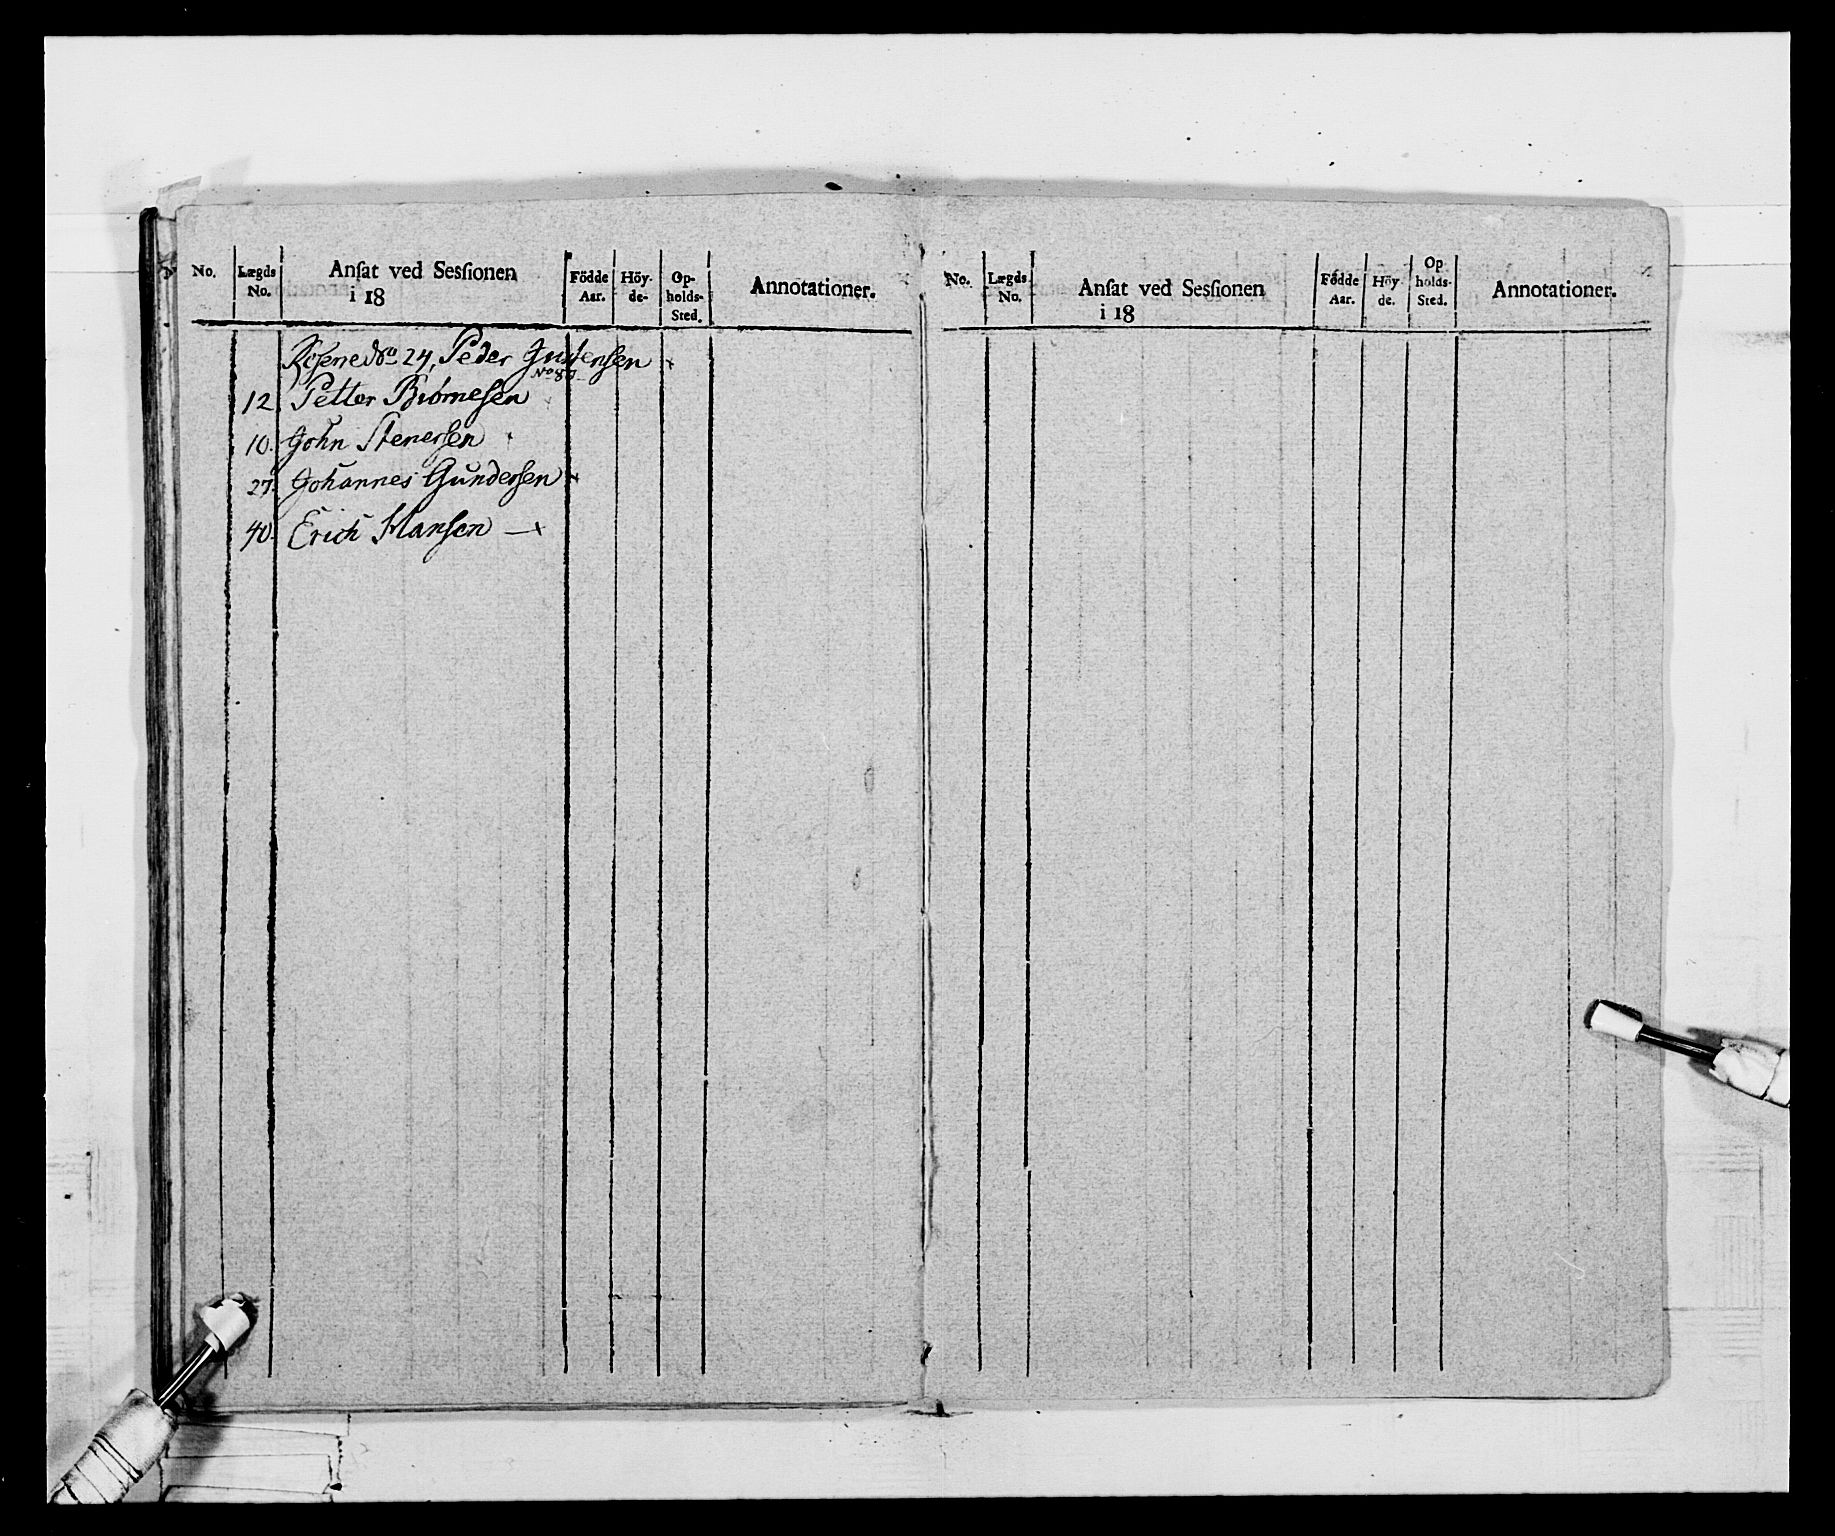 No. Lægds No. Anſat ved Sesſionen i 18 Födde Aar. Höy-de- Op-holds-Sted. Annotationer.
No. 24, Peder
No 87
12. Petter Biörnesen
10. John Stenersen
27. Johannes Gundersen
40. Erich Hansen
No. Lægds No. Anſat ved Sesſionen i 18 Födde Aar. Höy-de. Op holds-Sted. Annotationer.